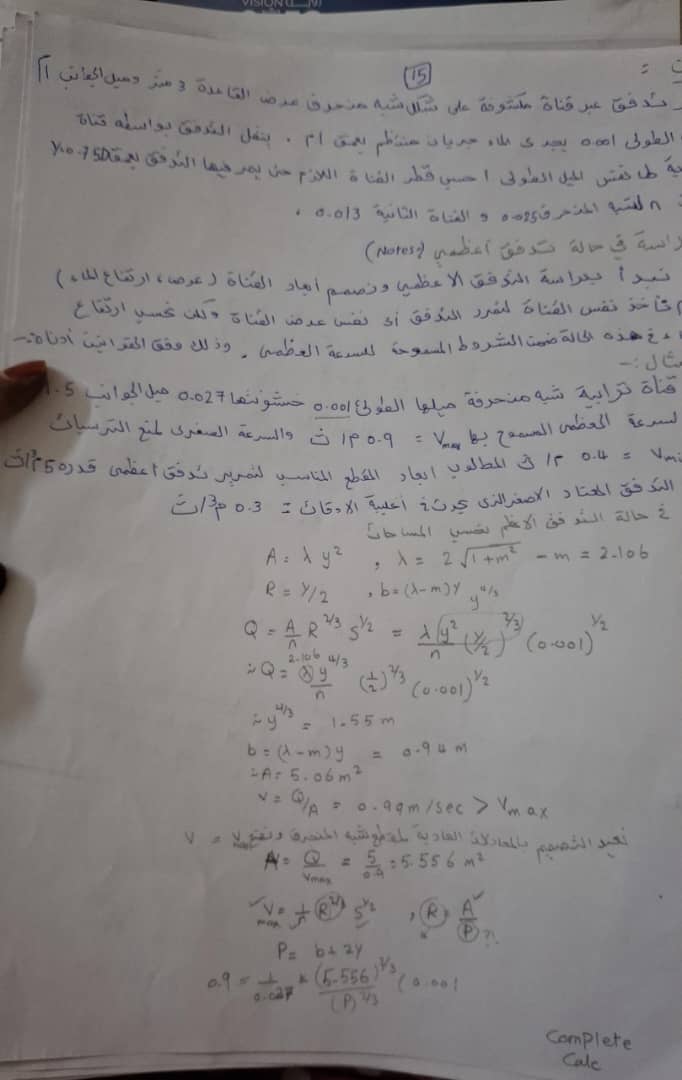 VISION
15
تدفق عبر قناة مكشوفة على شكل شبه منحرف عرض القاعدة 3 متر وميل الجوانب 1
الطولى 0.001 يجرى الماء جريان منتظم بعمق 1م . ينقل التدفق بواسطة قناة
لها نفس الميل الطولى احسبى قطر القناة اللازم حتى يمر فيها التدفق بعمق Y=0.75D
n للشبه المنحرف 0.025 و القناة الثانية 0.013 .
راسة في حالة تدفق أعظمي (Notes)
نبدأ بدراسة التدفق الاعظمى ونصمم أبعاد القناة (عرض، ارتفاع الماء)
م نأخذ نفس القناة لنمرر التدفق أى نفس عرض القناة ولكن نحسب ارتفاع
هذه الحالة ضمن الشروط المسموحة للسرعة العظمى . وذلك وفق القوانين أدناه :-
مثال :-
قناة ترابية شبه منحرفة ميلها الطولى 0.001 خشونتها 0.027 ميل الجوانب 1.5
لسرعة العظمى المسموح بها Vmax = 0.9 م/ث والسرعة الصغرى لمنع الترسبات
Vmin = 0.4 م/ث المطلوب ابعاد المقطع المناسب لتمرير تدفق أعظمى قدره 5 م³/ث
التدفق المعتاد الاصغر الذى يحدث في أغلبية الاوقات = 0.3 م³/ث
في حالة التدفق الاعظم نفس المساحات
A = λ y² , λ = 2√1+m² - m = 2.106
R = y/2 , b = (λ-m)y y^8/3
Q = A/n R^2/3 S^1/2 = λ y²/n (y/2)^2/3 (0.001)^1/2
∴ Q = 2.106 λ y^4/3 / n (1/2)^2/3 (0.001)^1/2
∴ y^4/3 = 1.55 m
b = (λ-m)y = 0.94 m
∴ A = 5.06 m²
V = Q/A = 0.99 m/sec > Vmax
نعيد التصميم بالمعادلات العادية لمقطع شبه المنحرف ونضع V = Vmax
A = Q/Vmax = 5/0.9 = 5.556 m²
Vmax = 1/n R^2/3 S^1/2 , R = A/P ?!
P = b + 2y
0.9 = 1/0.027 * (5.556)^2/3 / (P)^2/3 (0.001
Complete
Calc